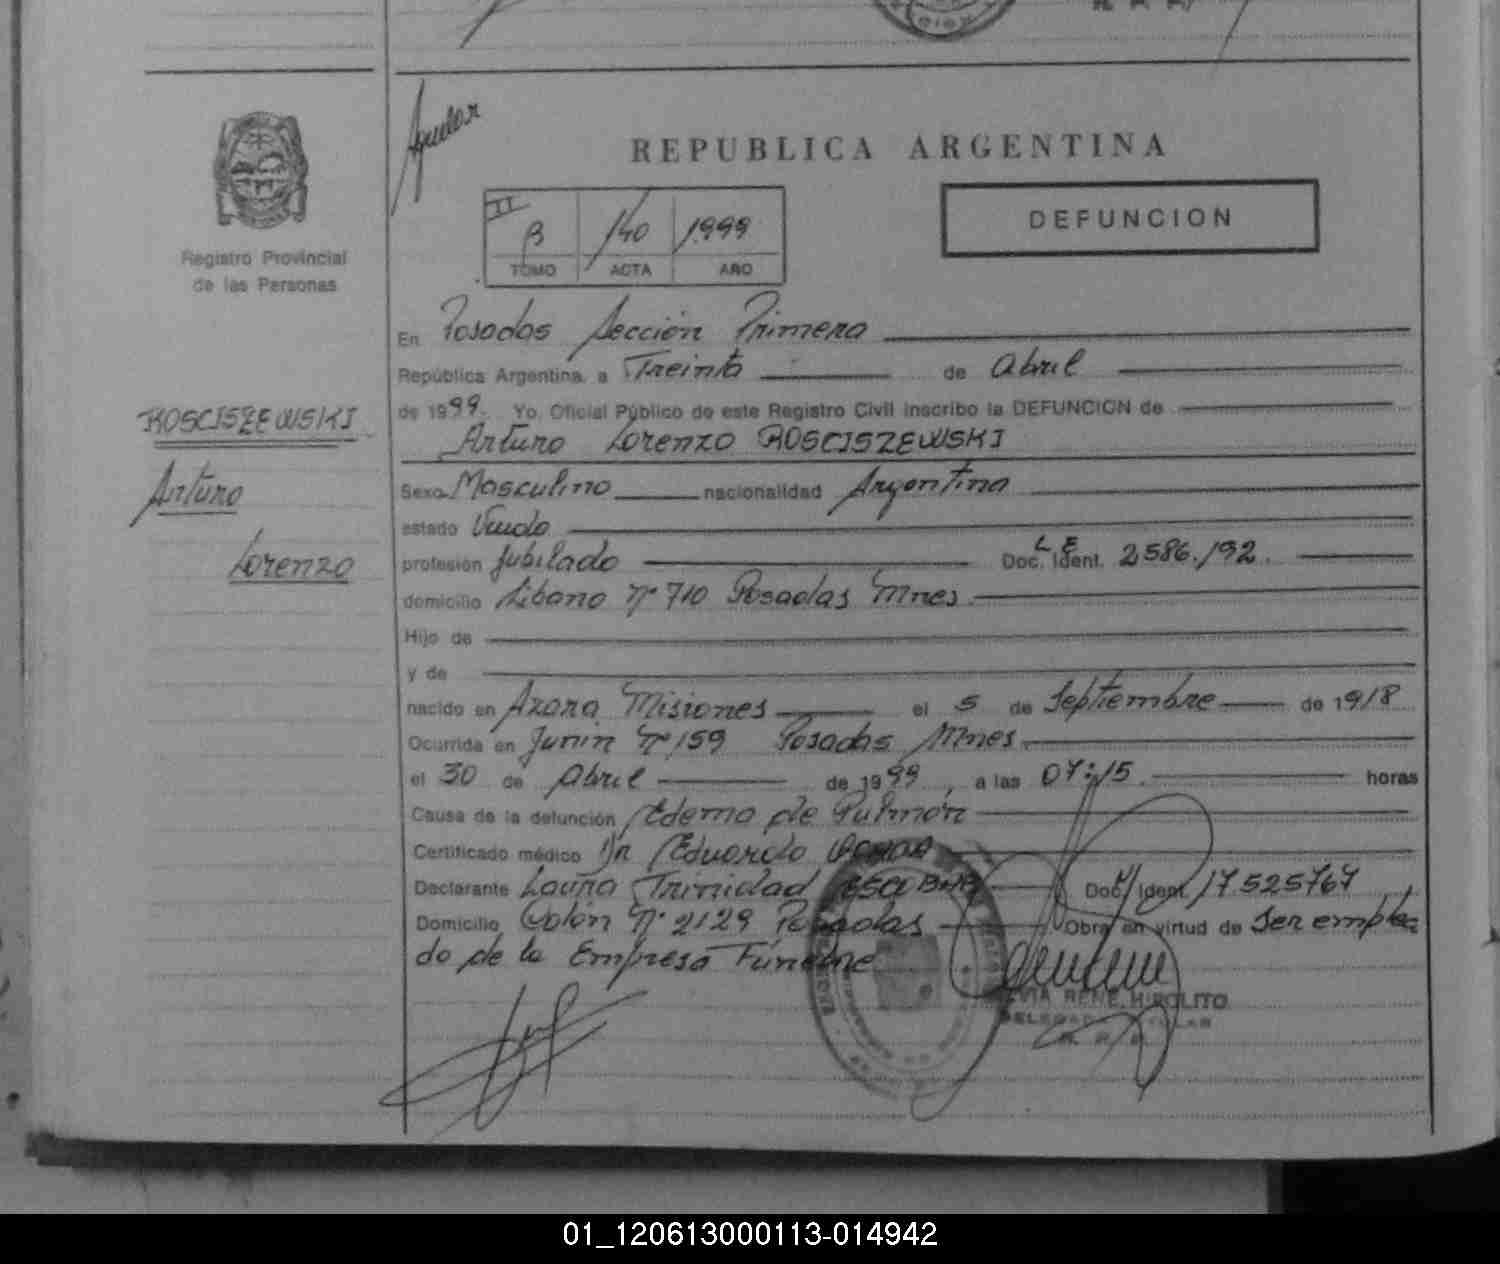 Aguilar
REPUBLICA ARGENTINA
DEFUNCION
II
B 140 1999
TOMO ACTA AÑO
Registro Provincial
de las Personas
ROSCISZEWSKI
Arturo
Lorenzo
En Posadas Sección Primera
República Argentina, a Treinta de Abril
de 1999. Yo, Oficial Público de este Registro Civil inscribo la DEFUNCION de
Arturo Lorenzo ROSCISZEWSKI
Sexo Masculino nacionalidad Argentina
estado Viudo
profesión Jubilado Doc. Ident. L E 2586.192.
domicilio Libano Nº 710 Posadas Mnes.
Hijo de
y de
nacido en Azara Misiones el 5 de Septiembre de 1918
Ocurrida en Junin Nº 159 Posadas Mnes.
el 30 de Abril de 1999, a las 07:15. horas
Causa de la defunción Edema de Pulmón
Certificado médico Dr Eduardo
Declarante Laura Trinidad ESCOBAR Doc. Ident. 17.525767
Domicilio Colón Nº 2129 Posadas Obra en virtud de Ser emplea
do de la Empresa Fúnebre
RENE HIPOLITO
01_120613000113-014942